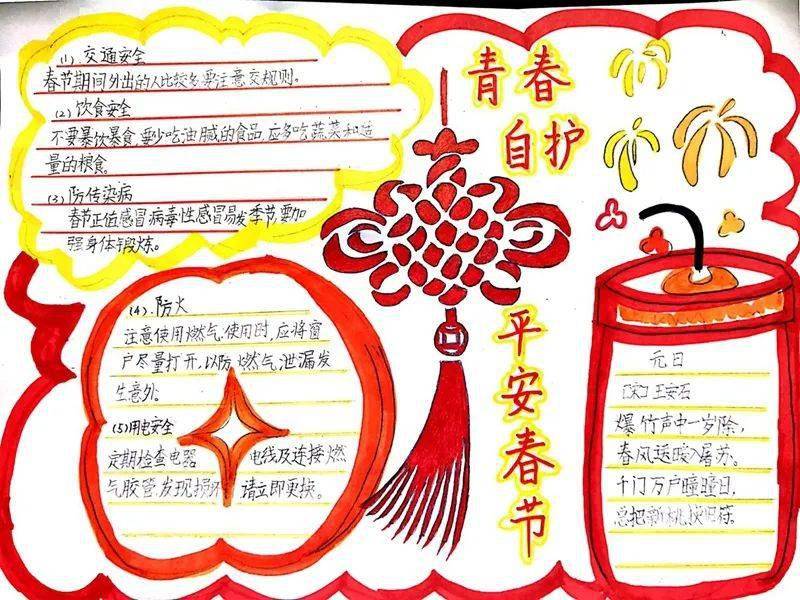 (1).交通安全
春节期间外出的人比较多要注意交规则。
(2)饮食安全
不要暴饮暴食,要少吃油腻的食品,应多吃蔬菜和适
量的粮食。
(3)防传染病
春节正值感冒病毒性感冒易发季节要加
强身体锻炼。
青春
自护
平安春节
(4).防火
注意使用燃气.使用时,应将窗
户尽量打开,以防燃气泄漏发
生意外。
(5)用电安全
定期检查电器 电线及连接燃
气胶管.发现损坏 请立即更换。
元日
[宋]王安石
爆竹声中一岁除,
春风送暖入屠苏。
千门万户曈曈日,
总把新桃换旧符。